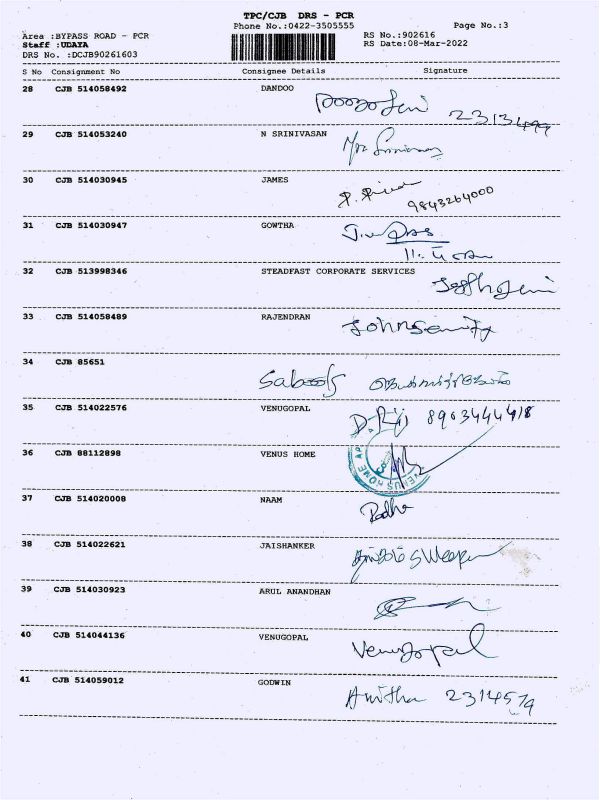 TPC/CJB DRS - PCR
Phone No.:0422-3505555
Page No.:3
Area :BYPASS ROAD - PCR
RS No.:902616
Staff :UDAYA
RS Date:08-Mar-2022
DRS No. :DCJB90261603
S No Consignment No Consignee Details Signature
28 CJB 514058492 DANDOO
2313499
29 CJB 514053240 N SRINIVASAN
30 CJB 514030945 JAMES
9843264000
31 CJB 514030947 GOWTHA
32 CJB 513998346 STEADFAST CORPORATE SERVICES
33 CJB 514058489 RAJENDRAN
34 CJB 85651
35 CJB 514022576 VENUGOPAL
36 CJB 88112898 VENUS HOME
VENUS HOME AP
37 CJB 514020008 NAAM
Radha
38 CJB 514022621 JAISHANKER
39 CJB 514030923 ARUL ANANDHAN
40 CJB 514044136 VENUGOPAL
Venugopal
41 CJB 514059012 GODWIN
Anitha 2314579